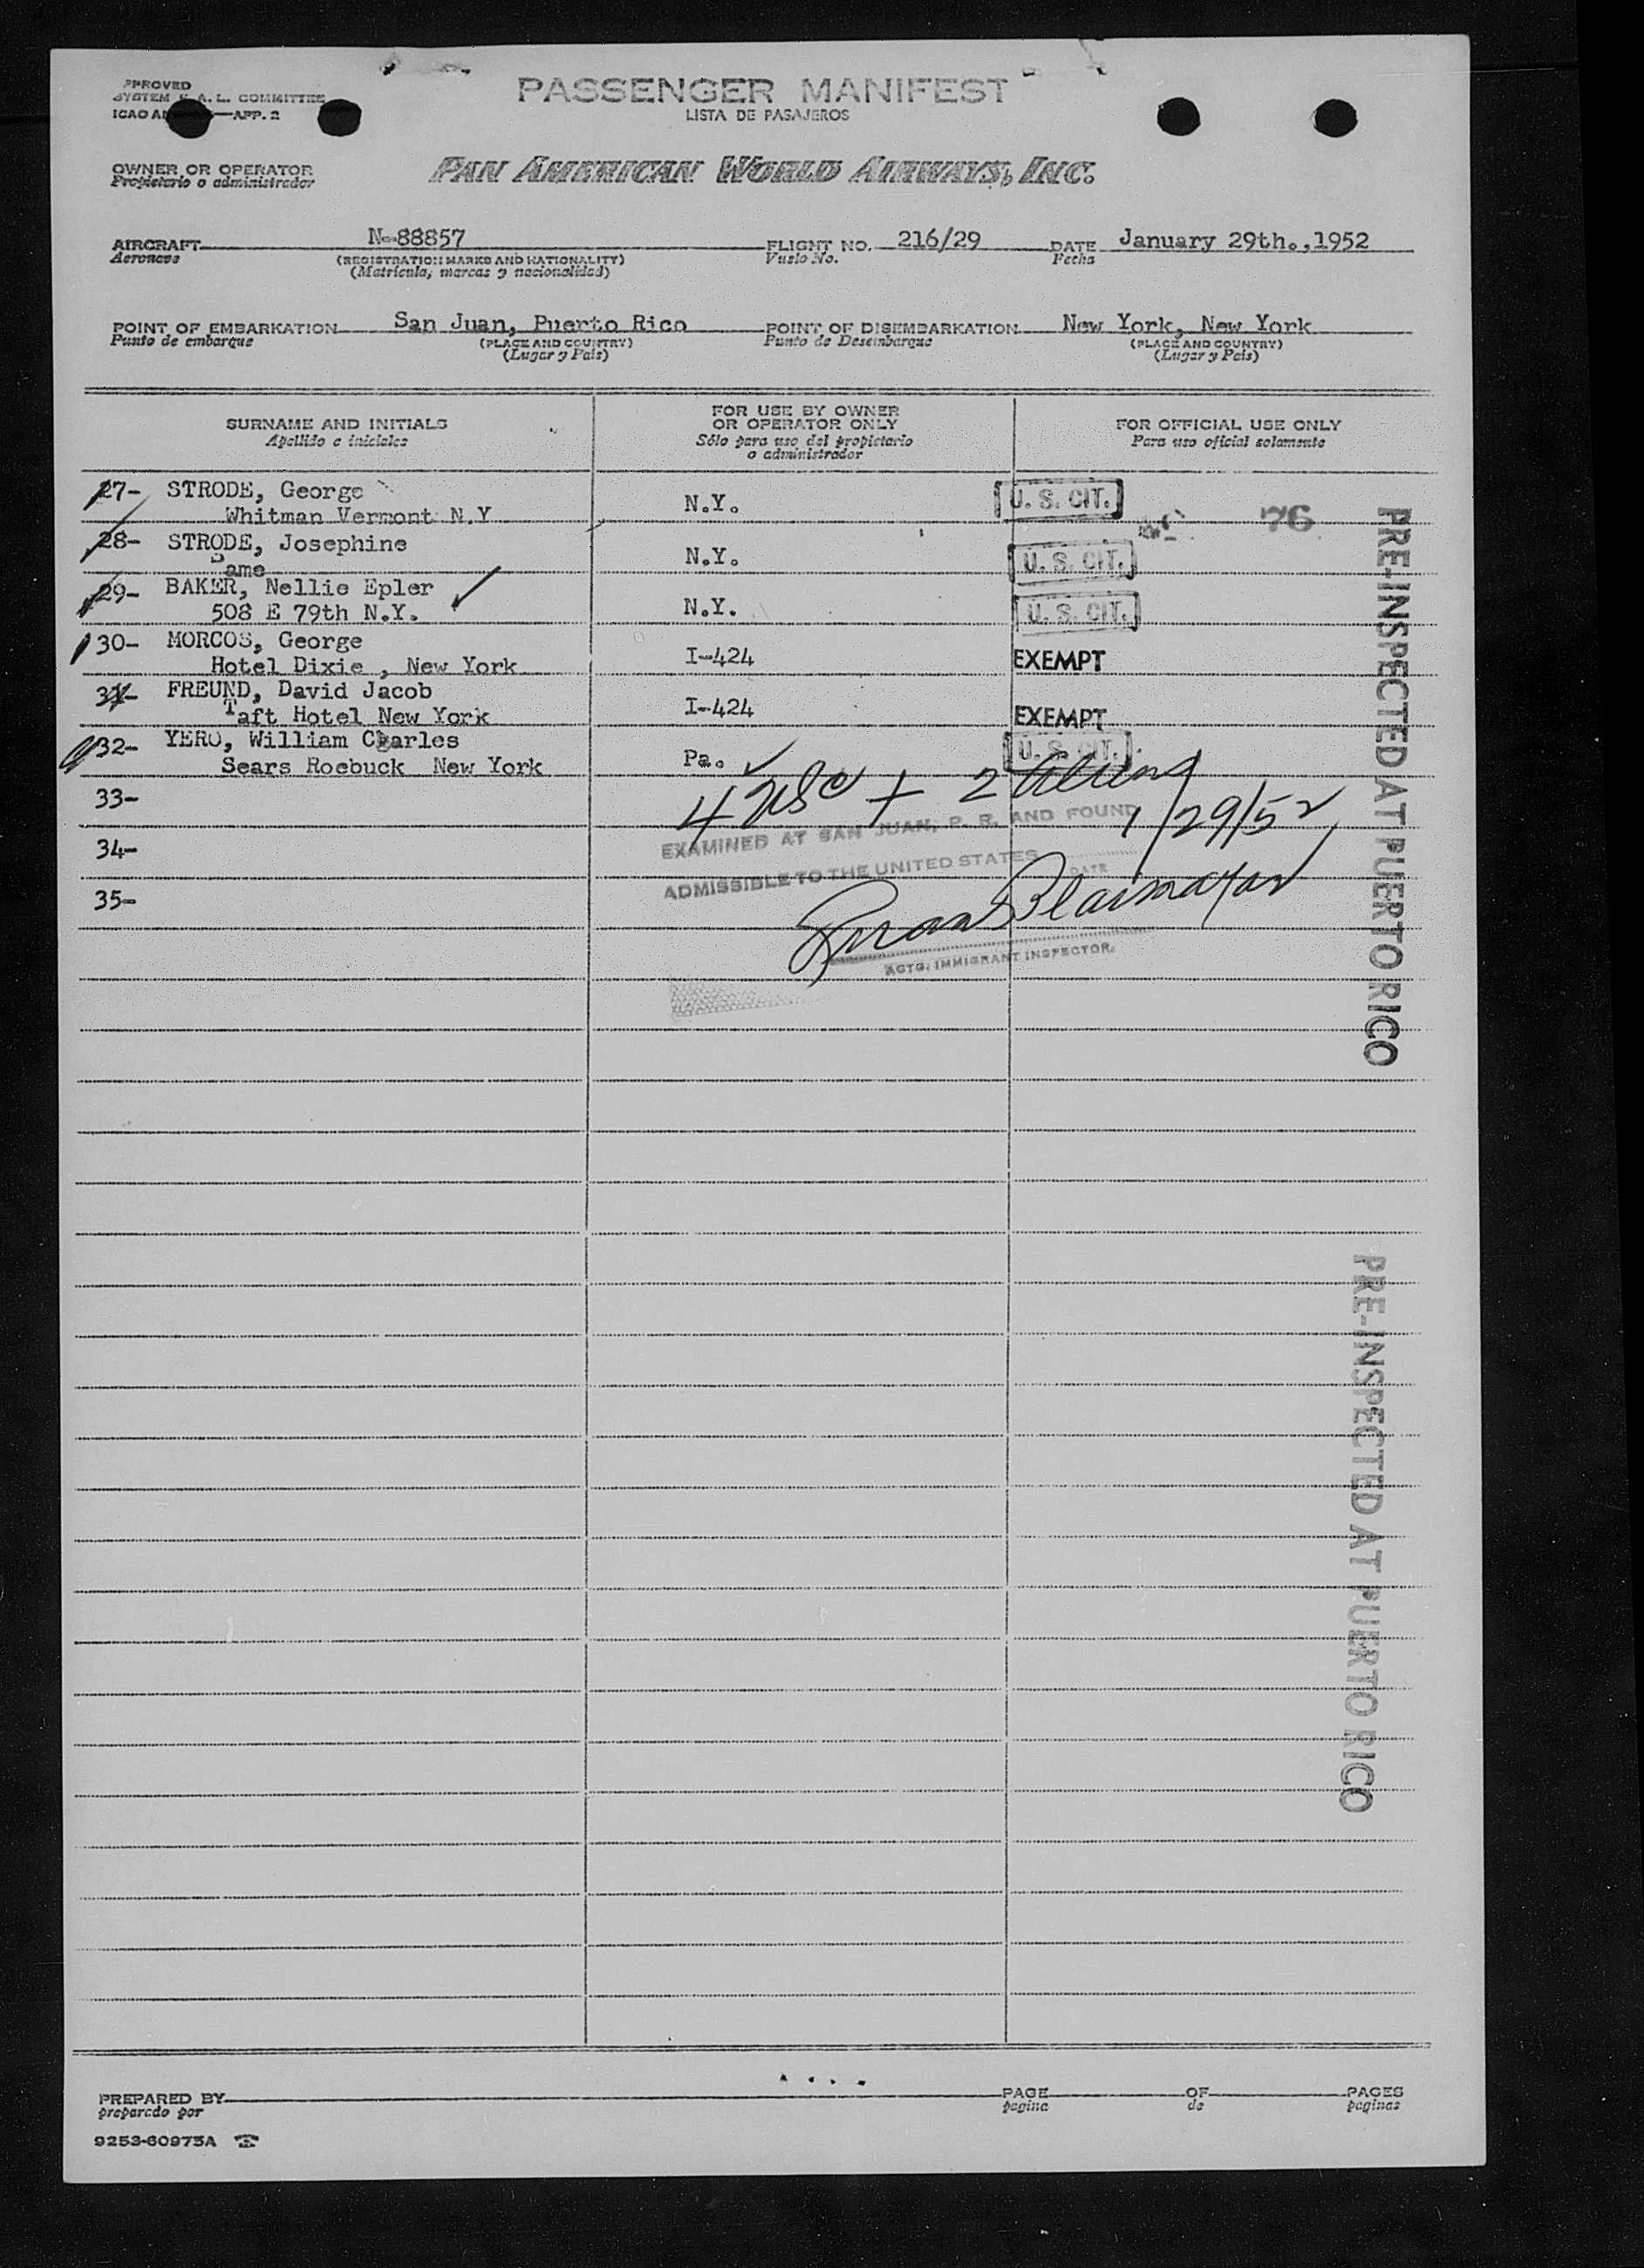 PPROVED
SYSTEM U.A.L. COMMITTEE
ICAO AN —APP. 2
PASSENGER MANIFEST
LISTA DE PASAJEROS
OWNER OR OPERATOR
Propietario o administrador
PAN AMERICAN WORLD AIRWAYS, INC.
AIRCRAFT N-88857 FLIGHT NO. 216/29 DATE January 29th.,1952
Aeronave (REGISTRATION MARKS AND NATIONALITY) Vuelo No. Fecha
(Matrícula, marcas y nacionalidad)
POINT OF EMBARKATION San Juan, Puerto Rico POINT OF DISEMBARKATION New York, New York
Punto de embarque (PLACE AND COUNTRY) Punto de Desembarque (PLACE AND COUNTRY)
(Lugar y País) (Lugar y País)
SURNAME AND INITIALS
Apellido e iniciales
FOR USE BY OWNER
OR OPERATOR ONLY
Sólo para uso del propietario
o administrador
FOR OFFICIAL USE ONLY
Para uso oficial solamente
27- STRODE, George N.Y. U. S. CIT.
Whitman Vermont N.Y 76
28- STRODE, Josephine N.Y. U. S. CIT.
Same
29- BAKER, Nellie Epler N.Y. U. S. CIT.
508 E 79th N.Y.
30- MORCOS, George I-424 EXEMPT
Hotel Dixie , New York
31- FREUND, David Jacob I-424 EXEMPT
Taft Hotel New York
32- YERO, William Charles Pa. U. S. CIT.
Sears Roebuck New York
33-
4 USC + 2 Aliens
1/29/52
34-
EXAMINED AT SAN JUAN, P. R. AND FOUND
ADMISSIBLE TO THE UNITED STATES
DATE
35-
ACTG. IMMIGRANT INSPECTOR.
PRE-INSPECTED AT PUERTO RICO
PRE-INSPECTED AT PUERTO RICO
PREPARED BY PAGE OF PAGES
preparado por pagina de paginas
9253-60975A